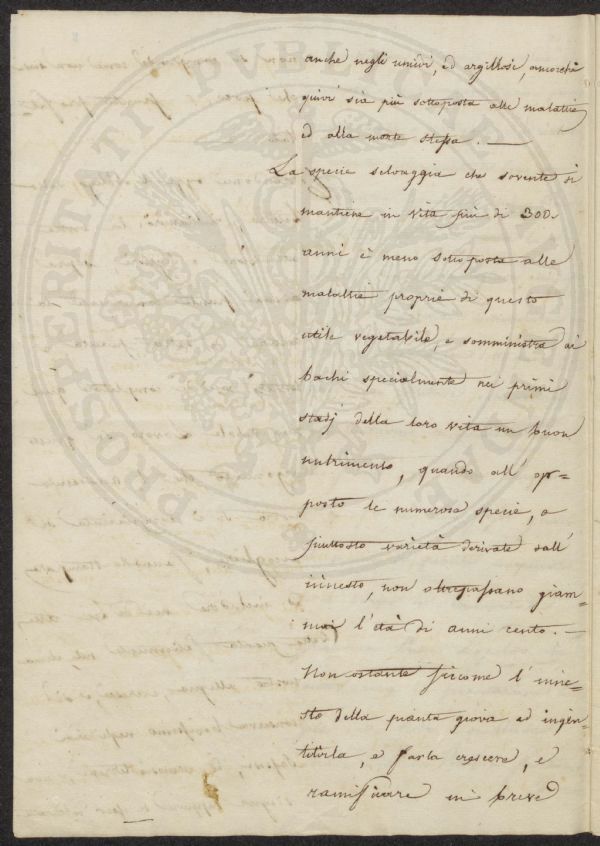 anche negli umidi, ed argillosi, ancorchè
quivi sia più sottoposta alle malattie,
ed alla morte stessa. —
La specie selvaggia che sovente si
mantiene in vita più di 300.
anni è meno sottoposta alle
malattie proprie di questo
utile vegetabile, e somministra ai
bachi specialmente nei primi
stadj della loro vita un buon
nutrimento, quando all' op=
posto le numerose specie, o
piuttosto varietà derivate dall'
innesto, non oltrepassano giam=
mai l'età di anni cento. —
Non ostante siccome l' inne=
sto della pianta giova ad ingen=
tilirla, e farla crescere, e
ramificare in breve
PROSPERITATI PVBLICAE